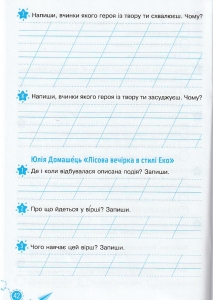 1 Напиши, вчинки якого героя із твору ти схвалюєш. Чому?
2 Напиши, вчинки якого героя із твору ти засуджуєш. Чому?
Юлія Домашець «Лісова вечірка в стилі Еко»
1 Де і коли відбувалася описана подія? Запиши.
2 Про що йдеться у вірші? Запиши.
3 Чого навчає цей вірш? Запиши.
42